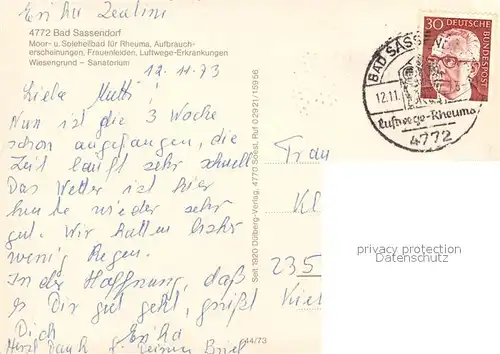 4772 Bad Sassendorf
Moor- u. Soleheilbad für Rheuma, Aufbrauch-
erscheinungen, Frauenleiden, Luftwege-Erkrankungen
Wiesengrund – Sanatorium
12.11.73
Liebe Mutti!
Nun ist die 3 Woche
schon angefangen, die
Zeit läuft sehr schnell
Das Wetter ist hier
heute wieder sehr
gut. Wir hatten bisher
wenig Regen.
In der Hoffnung, daß
es Dir gut geht, grüßt
Dich Erika
Herzl. Dank f. Deinen Brief
Seit 1920 Dülberg-Verlag, 4770 Soest, Ruf 02921/15956
44/73
30 DEUTSCHE BUNDESPOST
BAD SASSEN
12.11.
Luftwege-Rheuma
4772
Frau
Kl
235
Kiel
privacy protection
Datenschutz